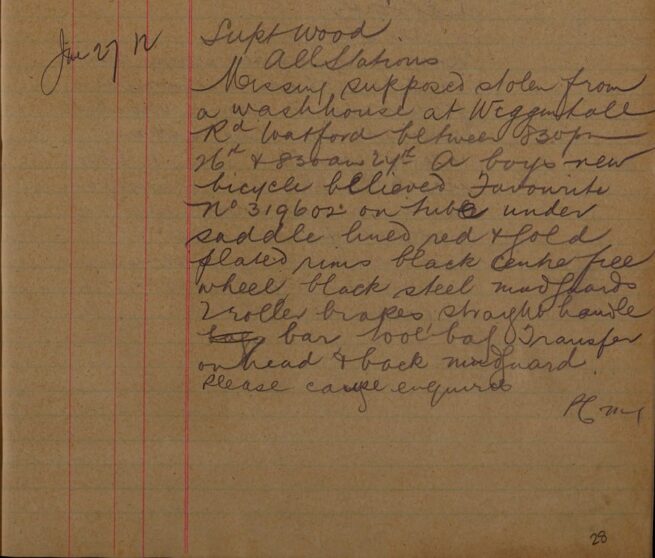 June 27 12
Supt Wood
All Stations
Missing supposed stolen from
a washhouse at Wiggenhall
Rd Watford between 830pm
26th & 830am 27th A boys new
bicycle believed Favourite
No 319602 on tube under
saddle lined red & gold
plated rims black centre free
wheel, black steel mudguards
2 roller brakes straight handle
bar tool bag Transfer
on head & back mudguard.
Please cause enquiries
28